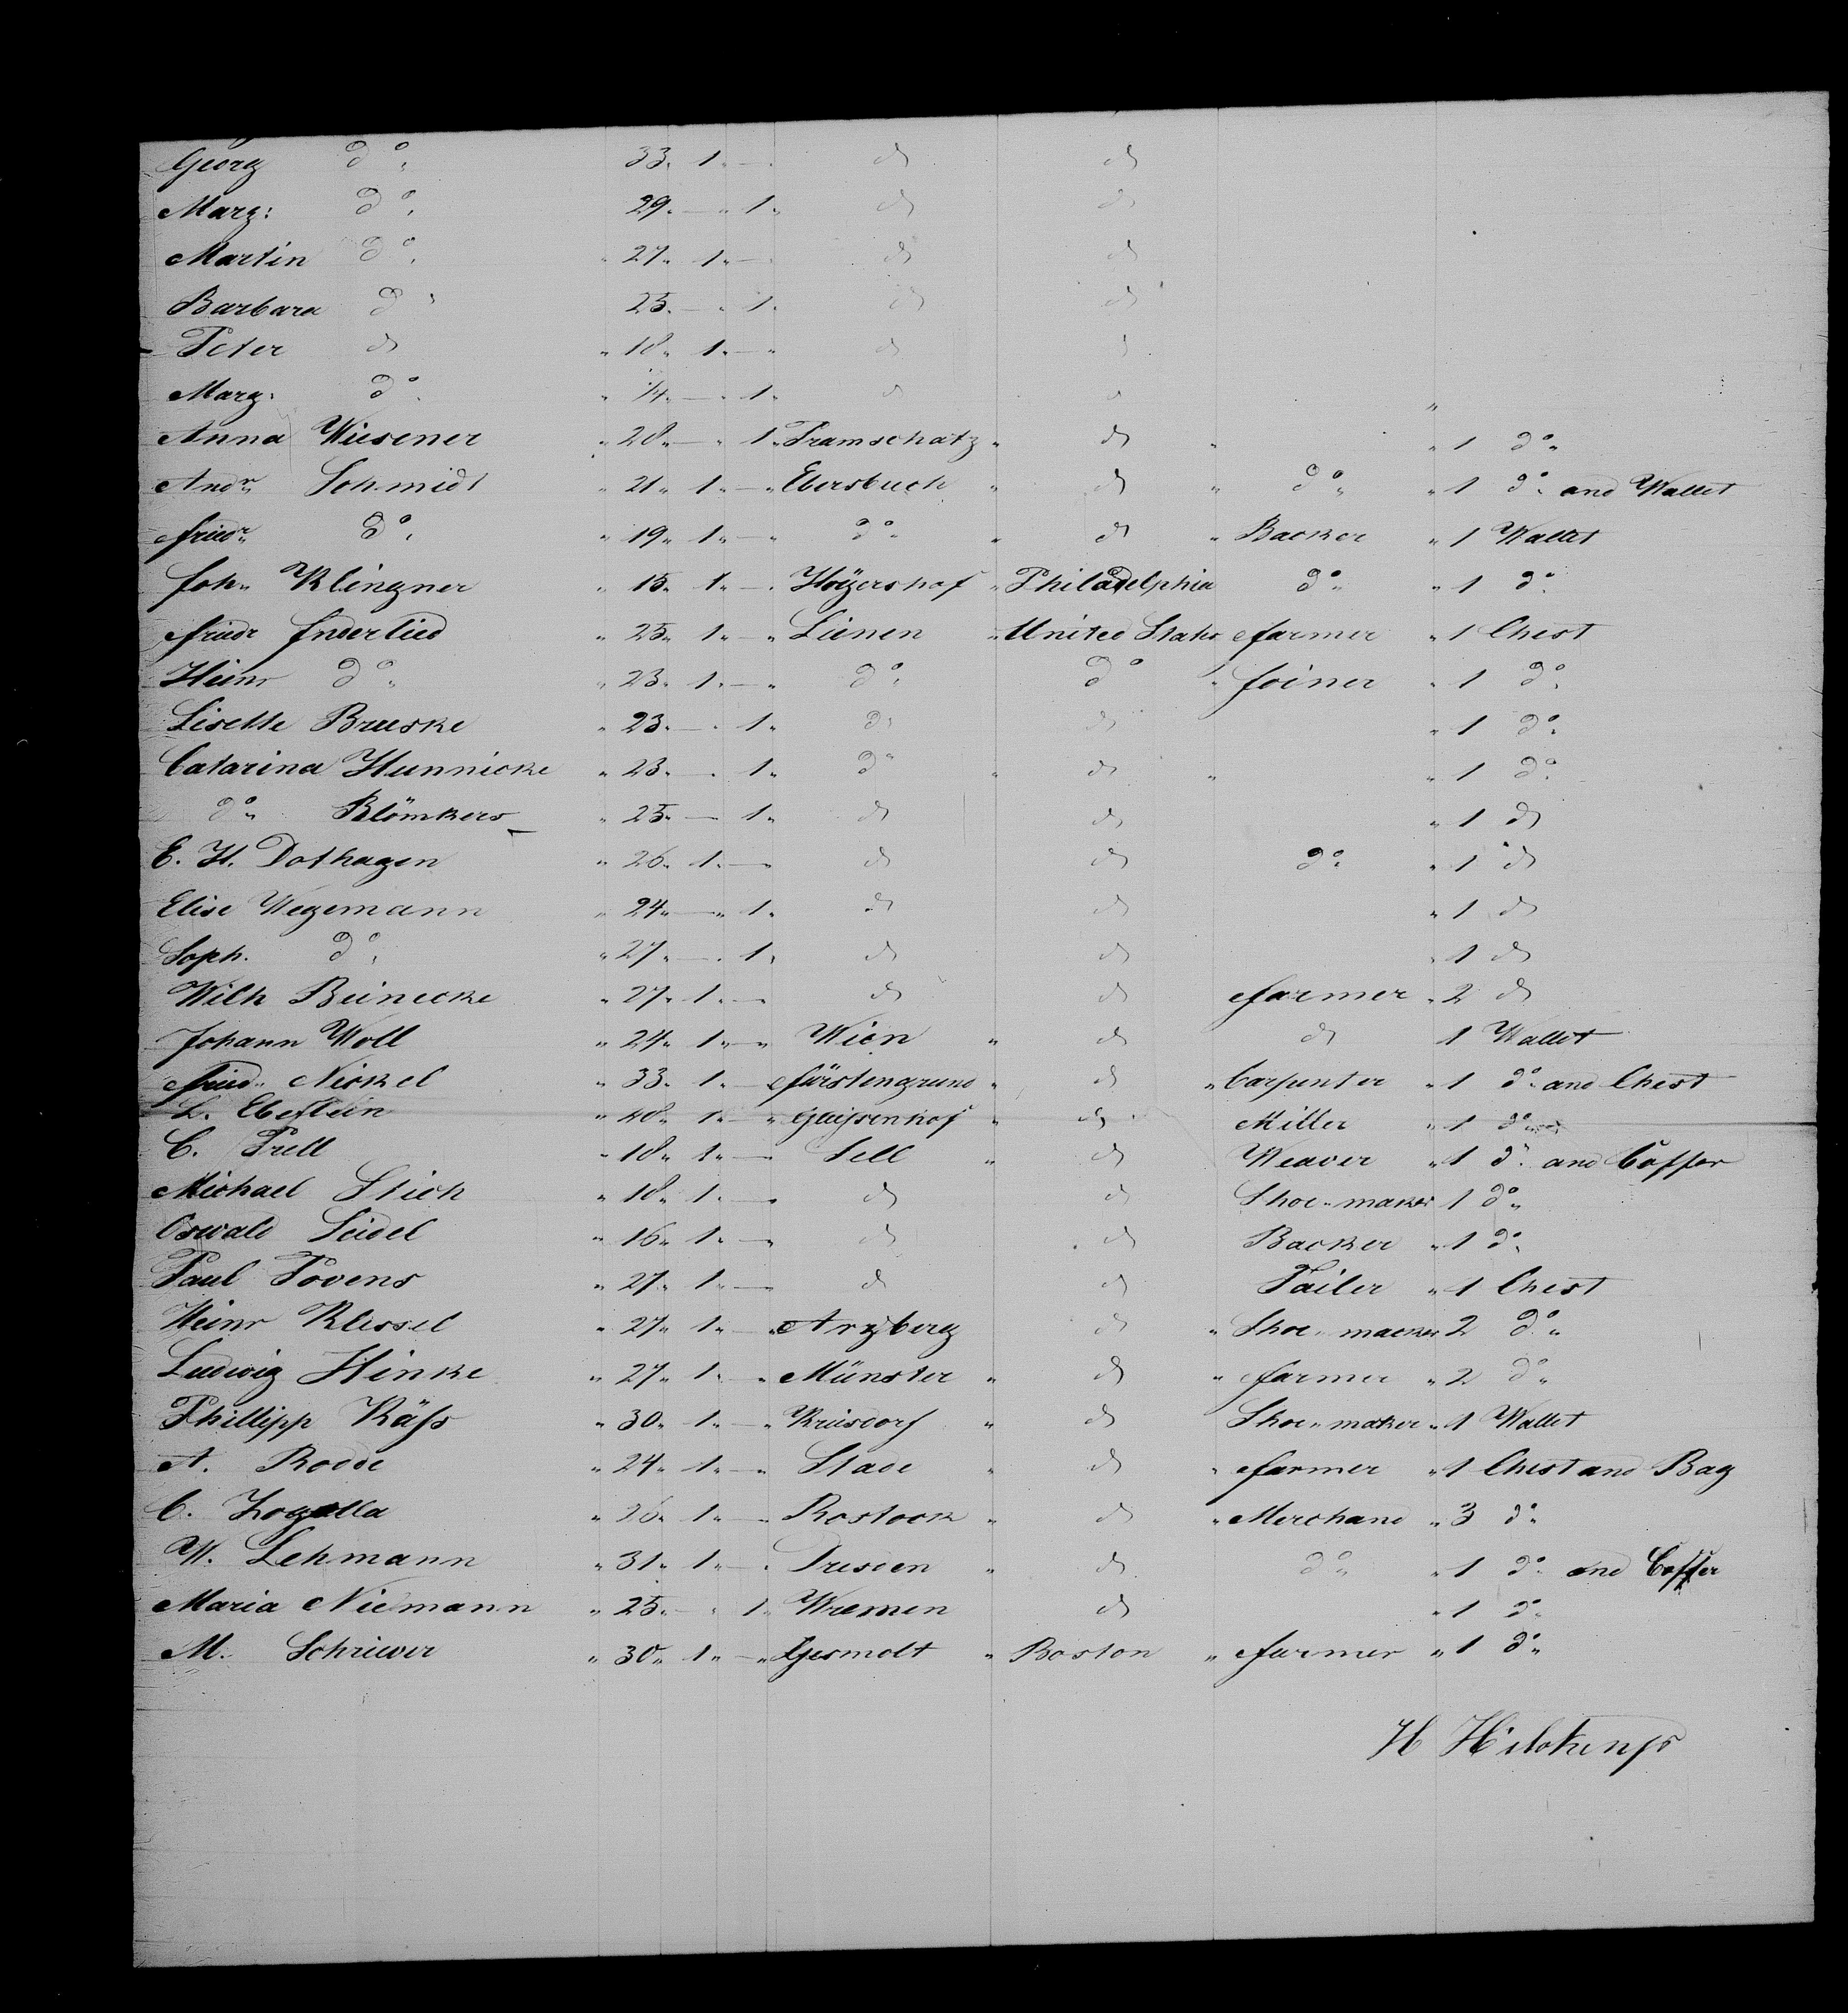 Georg do 33 1 — do do
Marg: do 29 — 1 do do
Martin do 27 1 — do do
Barbara do 25 — 1 do do
Peter do 18 1 — do do
Marg: do 14 — 1 do do
Anna Wiesener 28 — 1 Tramschatz do 1 do
Andr Schmidt 21 1 — Ebersbuch do do 1 do and Wallet
Friedr do 19 1 — do do Backer 1 Wallet
Joh. Klingner 15 1 — Höÿershof Philadelphia do 1 do
Friedr Inderlied 25 1 — Lienen United States Farmer 1 Chest
Heinr do 23 1 — do do Joiner 1 do
Lisette Brueske 23 — 1 do do 1 do
Catarina Hunnicke 23 — 1 do do 1 do
do Blömkers 25 — 1 do do 1 do
E. H. Dothagen 26 1 — do do do 1 do
Elise Wegemann 24 — 1 do do 1 do
Soph. do 27 — 1 do do 1 do
Wilh Beinecke 27 1 — do do Farmer 2 do
Johann Woll 24 1 — Wien do do 1 Wallet
Fried. Nickel 33 1 — Fürstengrund do Carpenter 1 do and Chest
L. Eberlein 48 1 — do Miller 1 do
C. Prell 18 1 — Sell do Weaver 1 do and Coffer
Michael Stich 18 1 — do do Shoe-maker 1 do
Oswald Seidel 16 1 — do do Backer 1 do
Paul Povens 27 1 — do do Tailer 1 Chest
Heinr Klessel 27 1 — Arzberg do Shoe-macker 2 do
Ludwig Hinke 27 1 — Münster do Farmer 2 do
Phillipp Käfs 30 1 — Kriisdorf do Shoe-maker 1 Wallet
A. Rodde 24 1 — Stade do Farmer 1 Chest and Bag
C. 26 1 — Rostock do Merchand 3 do
W. Lehmann 31 1 — Dresden do do 1 do and Coffer
Maria Niemann 25 — 1 Wremen do 1 do
M. Schriewer 30 1 — Gesmolt Boston Farmer 1 do
H